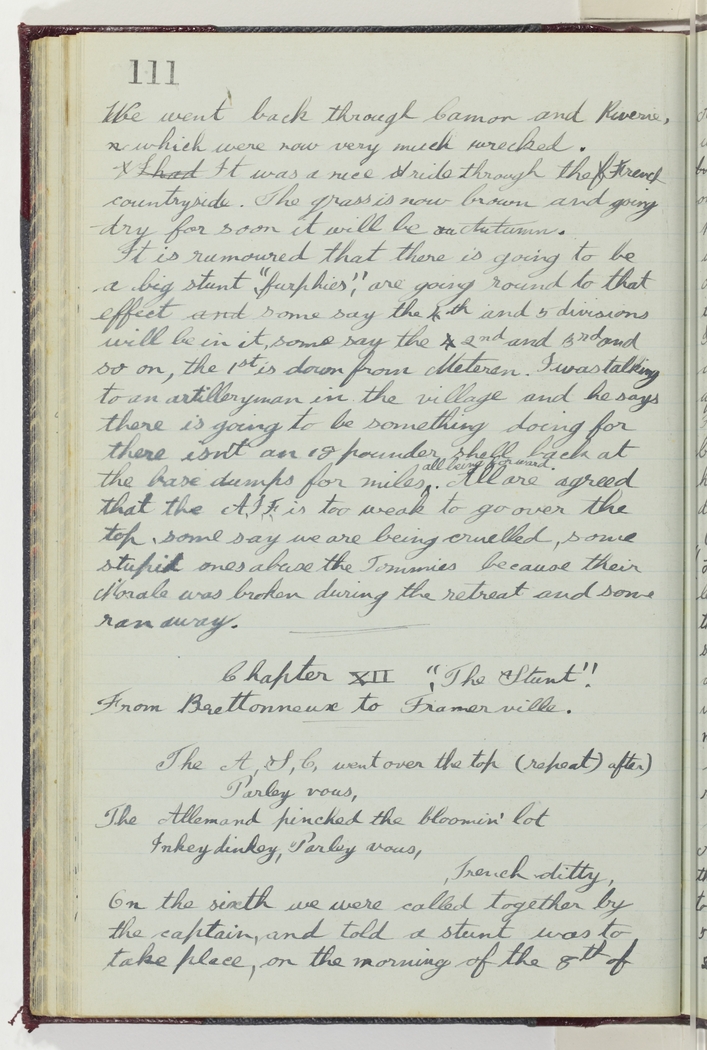 111
We went back through Camon and Riverie,
n which were now very much wrecked.
X I had It was a nice ride through the French
countryside. The grass is now brown and going
dry for soon it will be Autumn.
It is rumoured that there is going to be
a big stunt, "furphies", are going round to that
effect and some say the 4th and 5 divisions
will be in it, some say the 2nd and 3rd and
so on, the 1st is down from Meteren. I was talking
to an artilleryman in the village and he says
there is going to be something doing for
there isn't an 18 pounder shell back at
all being forward.
the base dumps for miles,. All are agreed
that the A.I.F. is too weak to go over the
top, some say we are being cruelled, some
stupid ones abuse the Tommies because their
Morale was broken during the retreat and some
ran away.
Chapter XII "The Stunt"!
From Brettonneux to Framerville.
The A, S, C, went over the top (repeat) after)
Parley vous,
The Allemand pinched the bloomin' lot
Inkey dinkey, Parley vous,
French ditty,
On the sixth we were called together by
the captain, and told a stunt was to
take place, on the morning of the 8th of